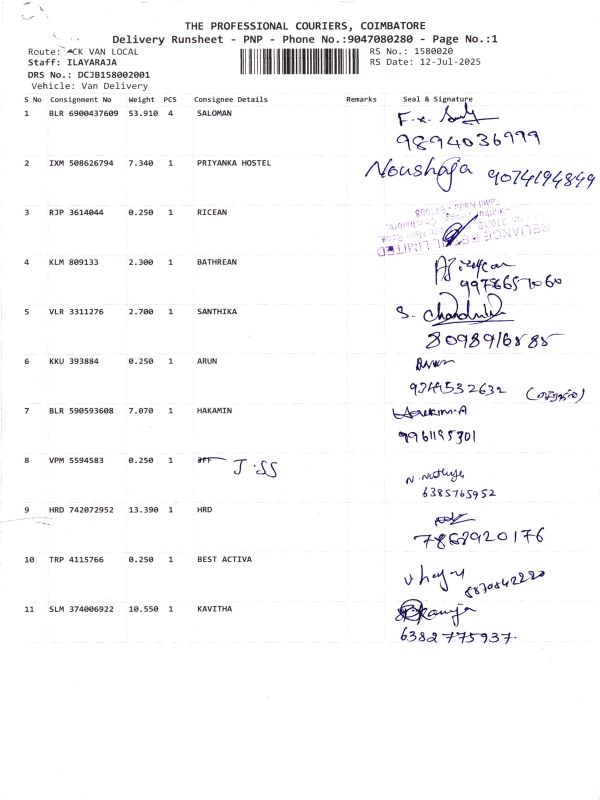 THE PROFESSIONAL COURIERS, COIMBATORE
Delivery Runsheet - PNP - Phone No.:9047080280 - Page No.:1
Route: CK VAN LOCAL RS No.: 1580020
Staff: ILAYARAJA RS Date: 12-Jul-2025
DRS No.: DCJB158002001
Vehicle: Van Delivery
S No Consignment No Weight PCS Consignee Details Remarks Seal & Signature
1 BLR 6900437609 53.910 4 SALOMAN F.X.
9894036999
2 IXM 508626794 7.340 1 PRIYANKA HOSTEL Noushaja 9074194849
3 RJP 3614044 0.250 1 RICEAN
RELIANCE RETAIL LIMITED
4 KLM 809133 2.300 1 BATHREAN
9978657060
5 VLR 3311276 2.700 1 SANTHIKA S.
8098916585
6 KKU 393884 0.250 1 ARUN
9349532632
7 BLR 590593608 7.070 1 HAKAMIN Hakim.A
9961195301
8 VPM 5594583 0.250 1 J.SS
6385765952
9 HRD 742072952 13.390 1 HRD
7868920176
10 TRP 4115766 0.250 1 BEST ACTIVA
8870842220
11 SLM 374006922 10.550 1 KAVITHA
6382775937